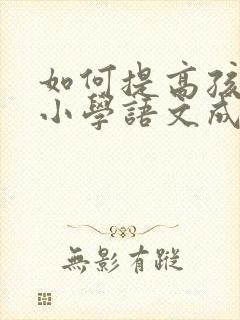 如何提高孩
小學語文成
無影有蹤